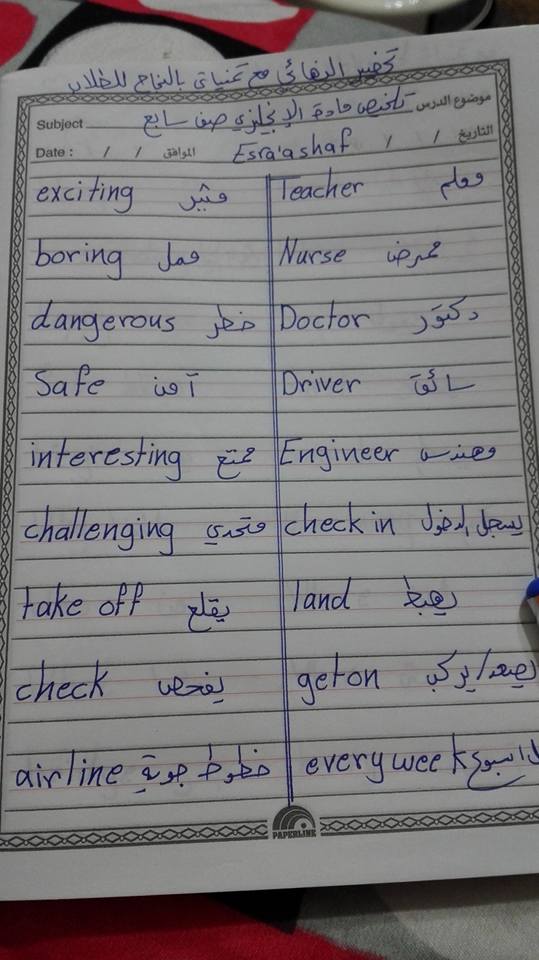 تحضير النهائي مع تمنياتي بالنجاح للطلاب
Subject تلخيص مادة الإنجليزي صف سابع موضوع الدرس
Date : / / الموافق Esra'a shaf / / التاريخ
exciting مثير Teacher معلم
boring ممل Nurse ممرض
dangerous خطر Doctor دكتور
Safe آمن Driver سائق
interesting ممتع Engineer مهندس
challenging متحدي check in يسجل الدخول
take off يقلع land يهبط
check يفحص get on يصعد/يركب
airline خطوط جوية every week اسبوع
PAPERLINE